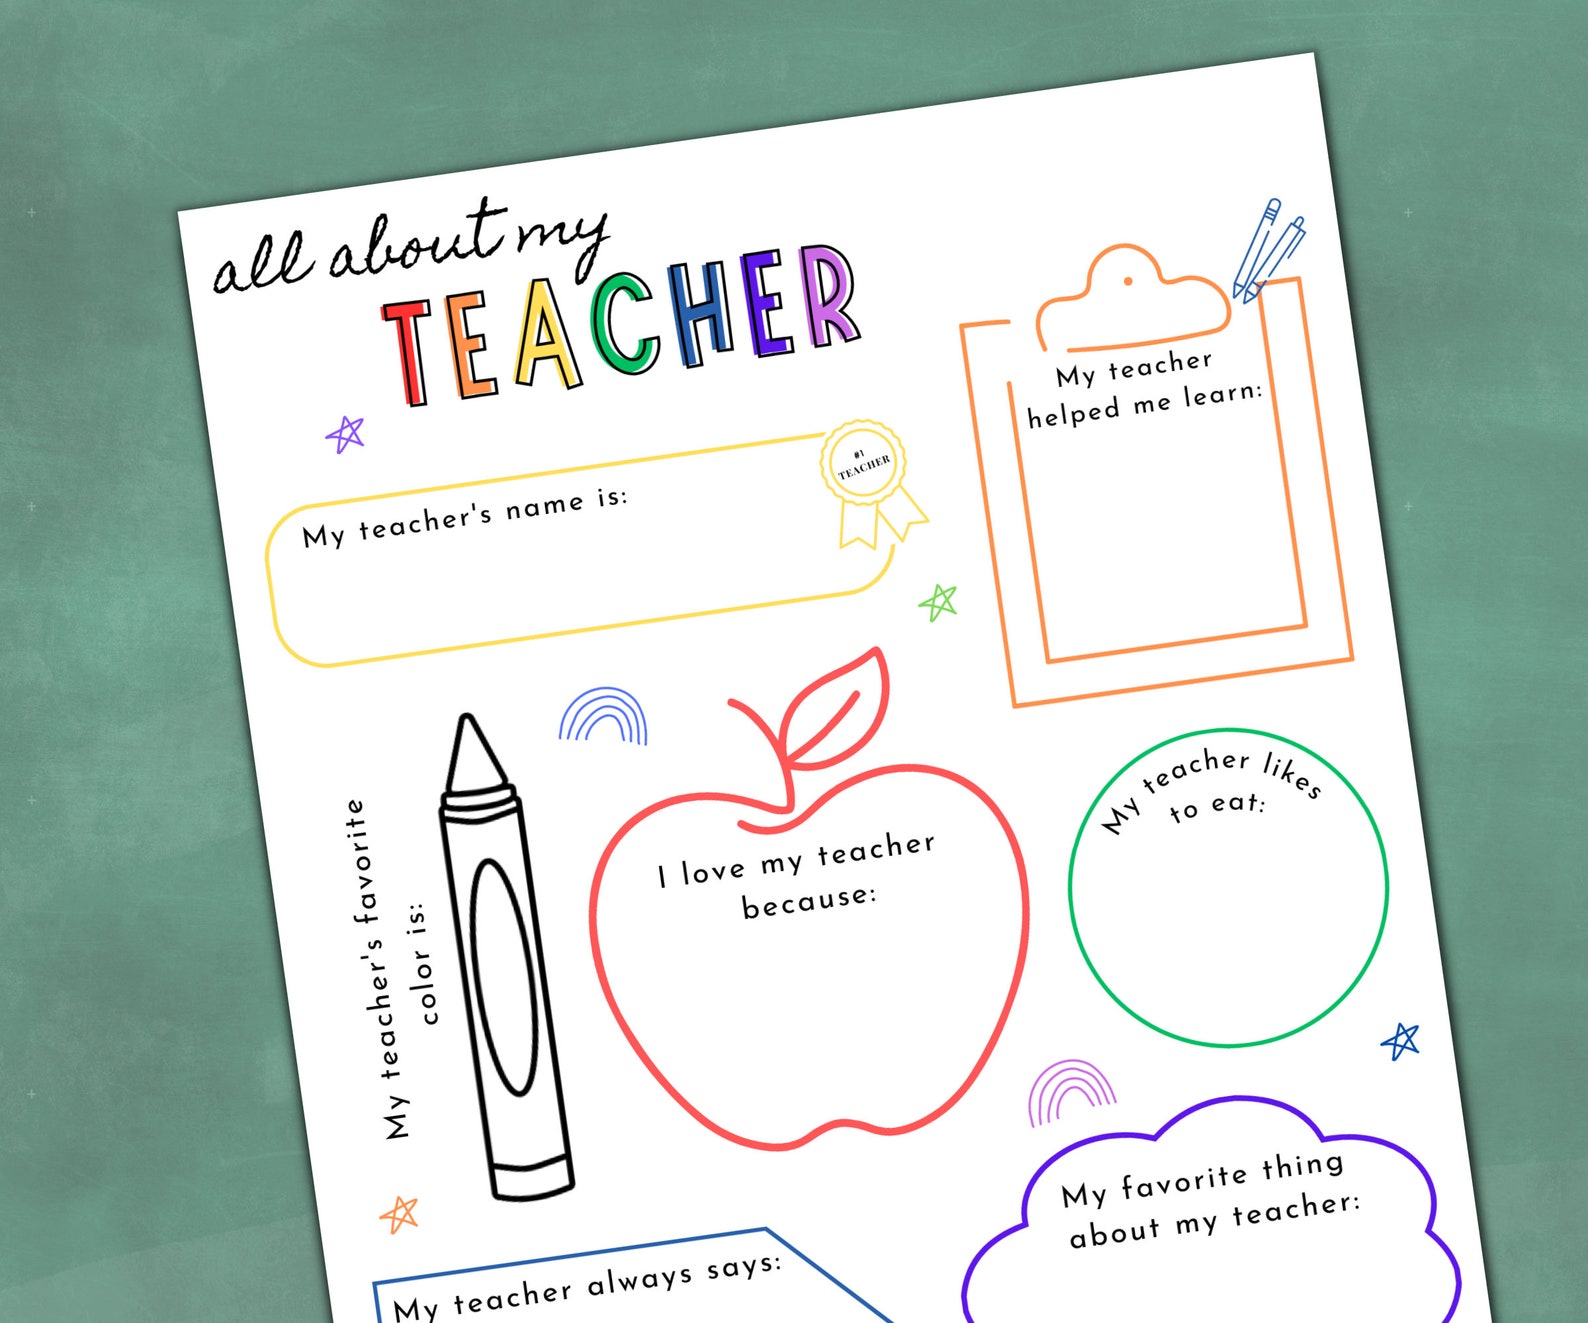 all about my
TEACHER
#1
TEACHER
My teacher's name is:
My teacher
helped me learn:
My teacher's favorite
color is:
I love my teacher
because:
My teacher likes
to eat:
My favorite thing
about my teacher:
My teacher always says: